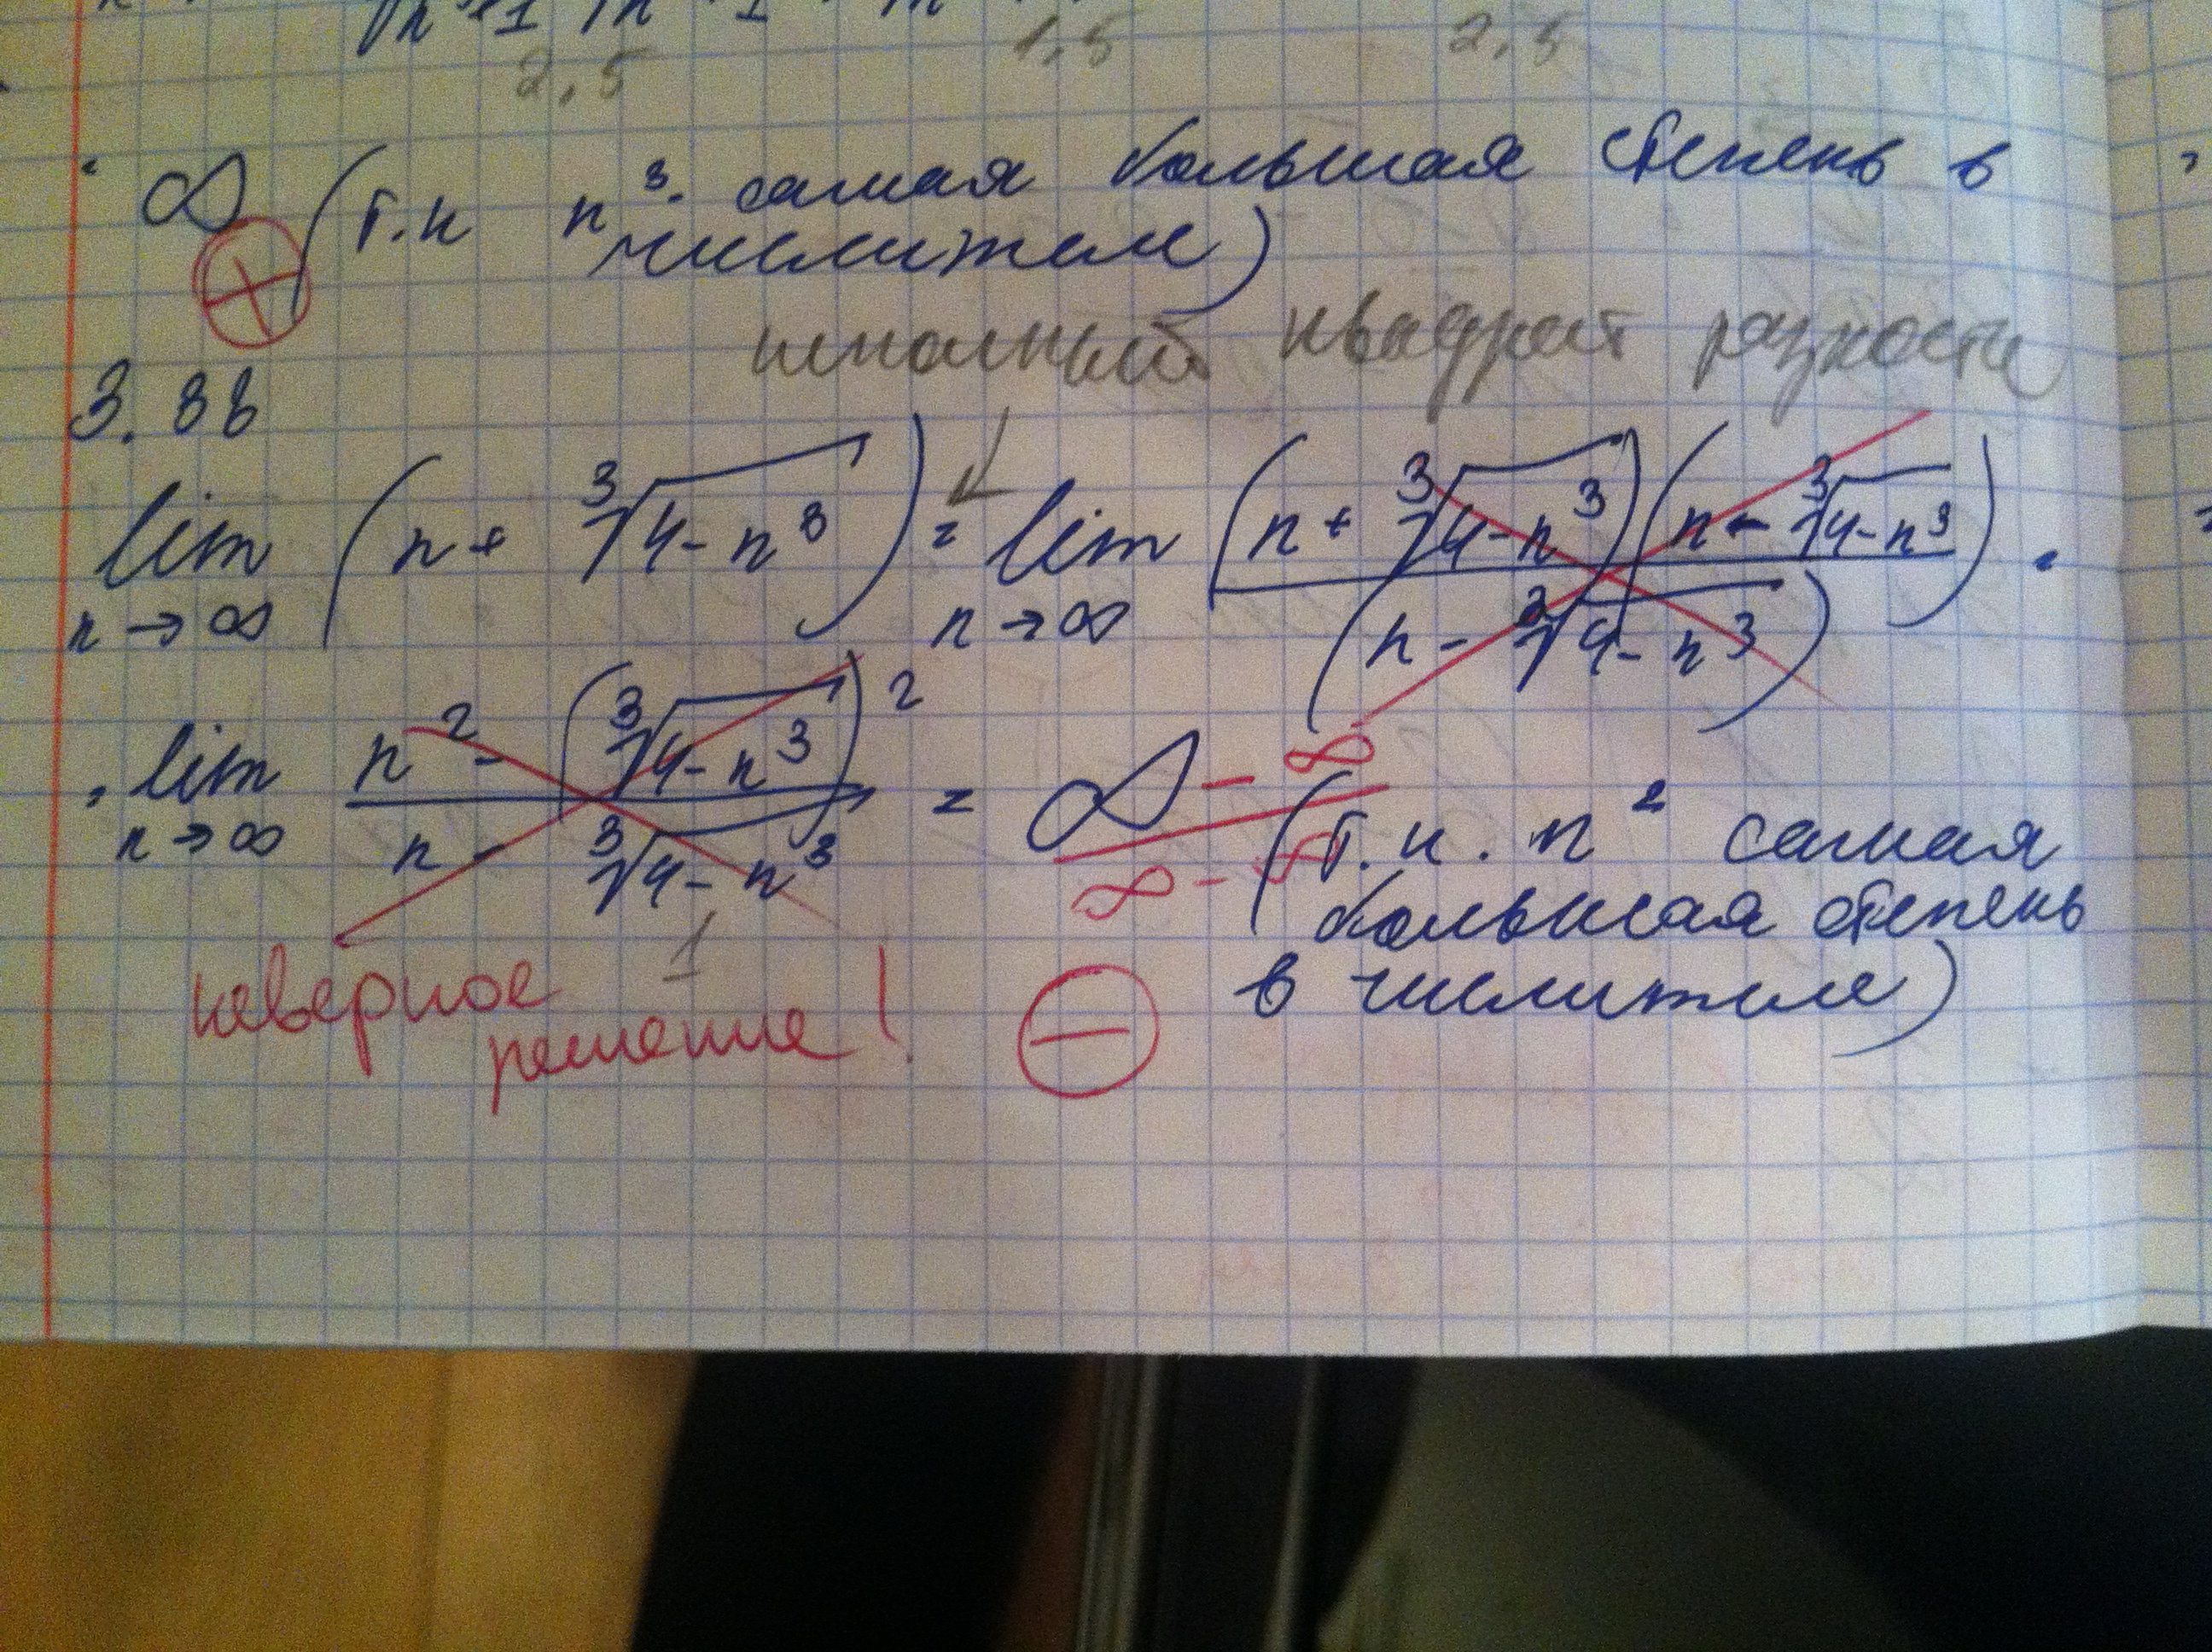 2,5 1,5 2,5
∞ (т.к n³ самая большая степень в
числителе)
неполный квадрат разности
3.88
lim n→∞ (n + ∛(4-n³)) = lim n→∞ (n + ∛(4-n³))(n - ∛(4-n³)) / (n - ∛(4-n³)) ·
· lim n→∞ n² - (∛(4-n³))² / n - ∛(4-n³) = ∞ - ∞ / ∞ - ∞ (т.к. n² самая
большая степень
в числителе)
1
неверное
решение!